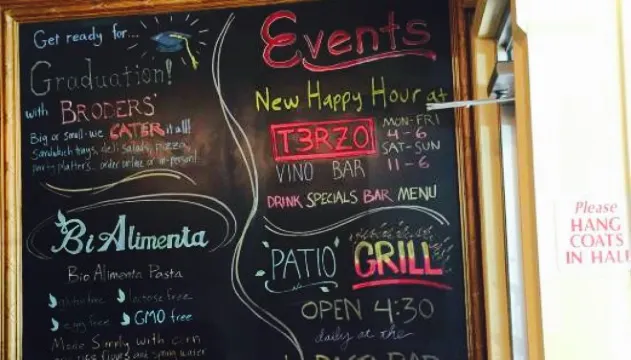 Get ready for...
Graduation!
with BRODERS'
Big or small-we CATER it all!
Sandwich trays, deli salads, pizza,
party platters... order online or in-person!
BiAlimenta
Bio Alimenta Pasta
gluten free lactose free
egg free GMO free
Made Simply with corn
and spring water
Events
New Happy Hour at
T3RZO
VINO BAR
MON-FRI
4-6
SAT-SUN
11-6
DRINK SPECIALS BAR MENU
PATIO GRILL
OPEN 4:30
daily at the
BAR
Please
HANG
COATS
IN HALL